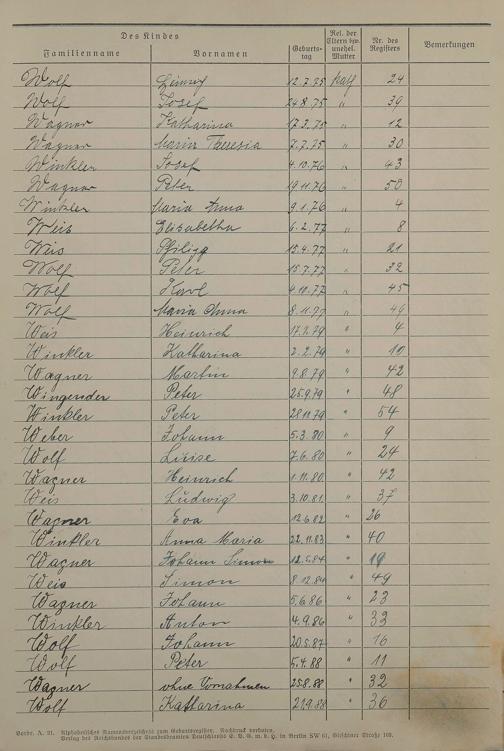 Des Kindes
Familienname Vornamen Geburts-tag Rel. der Eltern bzw. unehel. Mutter Nr. des Registers Bemerkungen
Wolf 12.7.75 kath 24
Wolf Josef 24.8.75 " 39
Wagner Katharina 17.3.75 " 12
Wagner Maria Theresia 7.7.75 " 30
Winkler Josef 4.10.76 " 43
Wagner Peter 19.11.76 " 50
Winkler Maria Anna 9.1.76 " 4
Weis Elisabetha 6.2.77 " 8
Weis Philipp 15.4.77 " 21
Wolf Peter 15.7.77 " 32
Wolf Karl 4.10.77 " 45
Wolf Maria Anna 8.11.77 " 49
Weis Heinrich 17.1.79 " 4
Winkler Katharina 2.2.79 " 10
Wagner Martin 9.8.79 " 42
Wingender Peter 25.9.79 " 48
Winkler Peter 28.11.79 " 54
Weber Johann 5.3.80 " 9
Wolf Luise 7.6.80 " 24
Wagner Heinrich 1.11.80 " 42
Weis Ludwig 3.10.81 " 37
Wagner Eva 12.6.82 " 26
Winkler Anna Maria 22.11.83 " 40
Wagner Johann Simon 12.5.84 " 19
Weis Simon 8.12.84 " 49
Wagner Johann 5.6.86 " 23
Winkler Anton 4.9.86 " 33
Wolf Johann 20.5.87 " 16
Wolf Peter 5.4.88 " 11
Wagner ohne Vornahmen 25.8.88 " 32
Wolf Katharina 21.9.88 " 36
Vordr. A 21. Alphabetisches Namensverzeichnis zum Geburtsregister. Nachdruck verboten.
Verlag des Reichsbundes der Standesbeamten Deutschlands E. V. G. m. b. H. in Berlin SW 61, Gitschiner Straße 109.